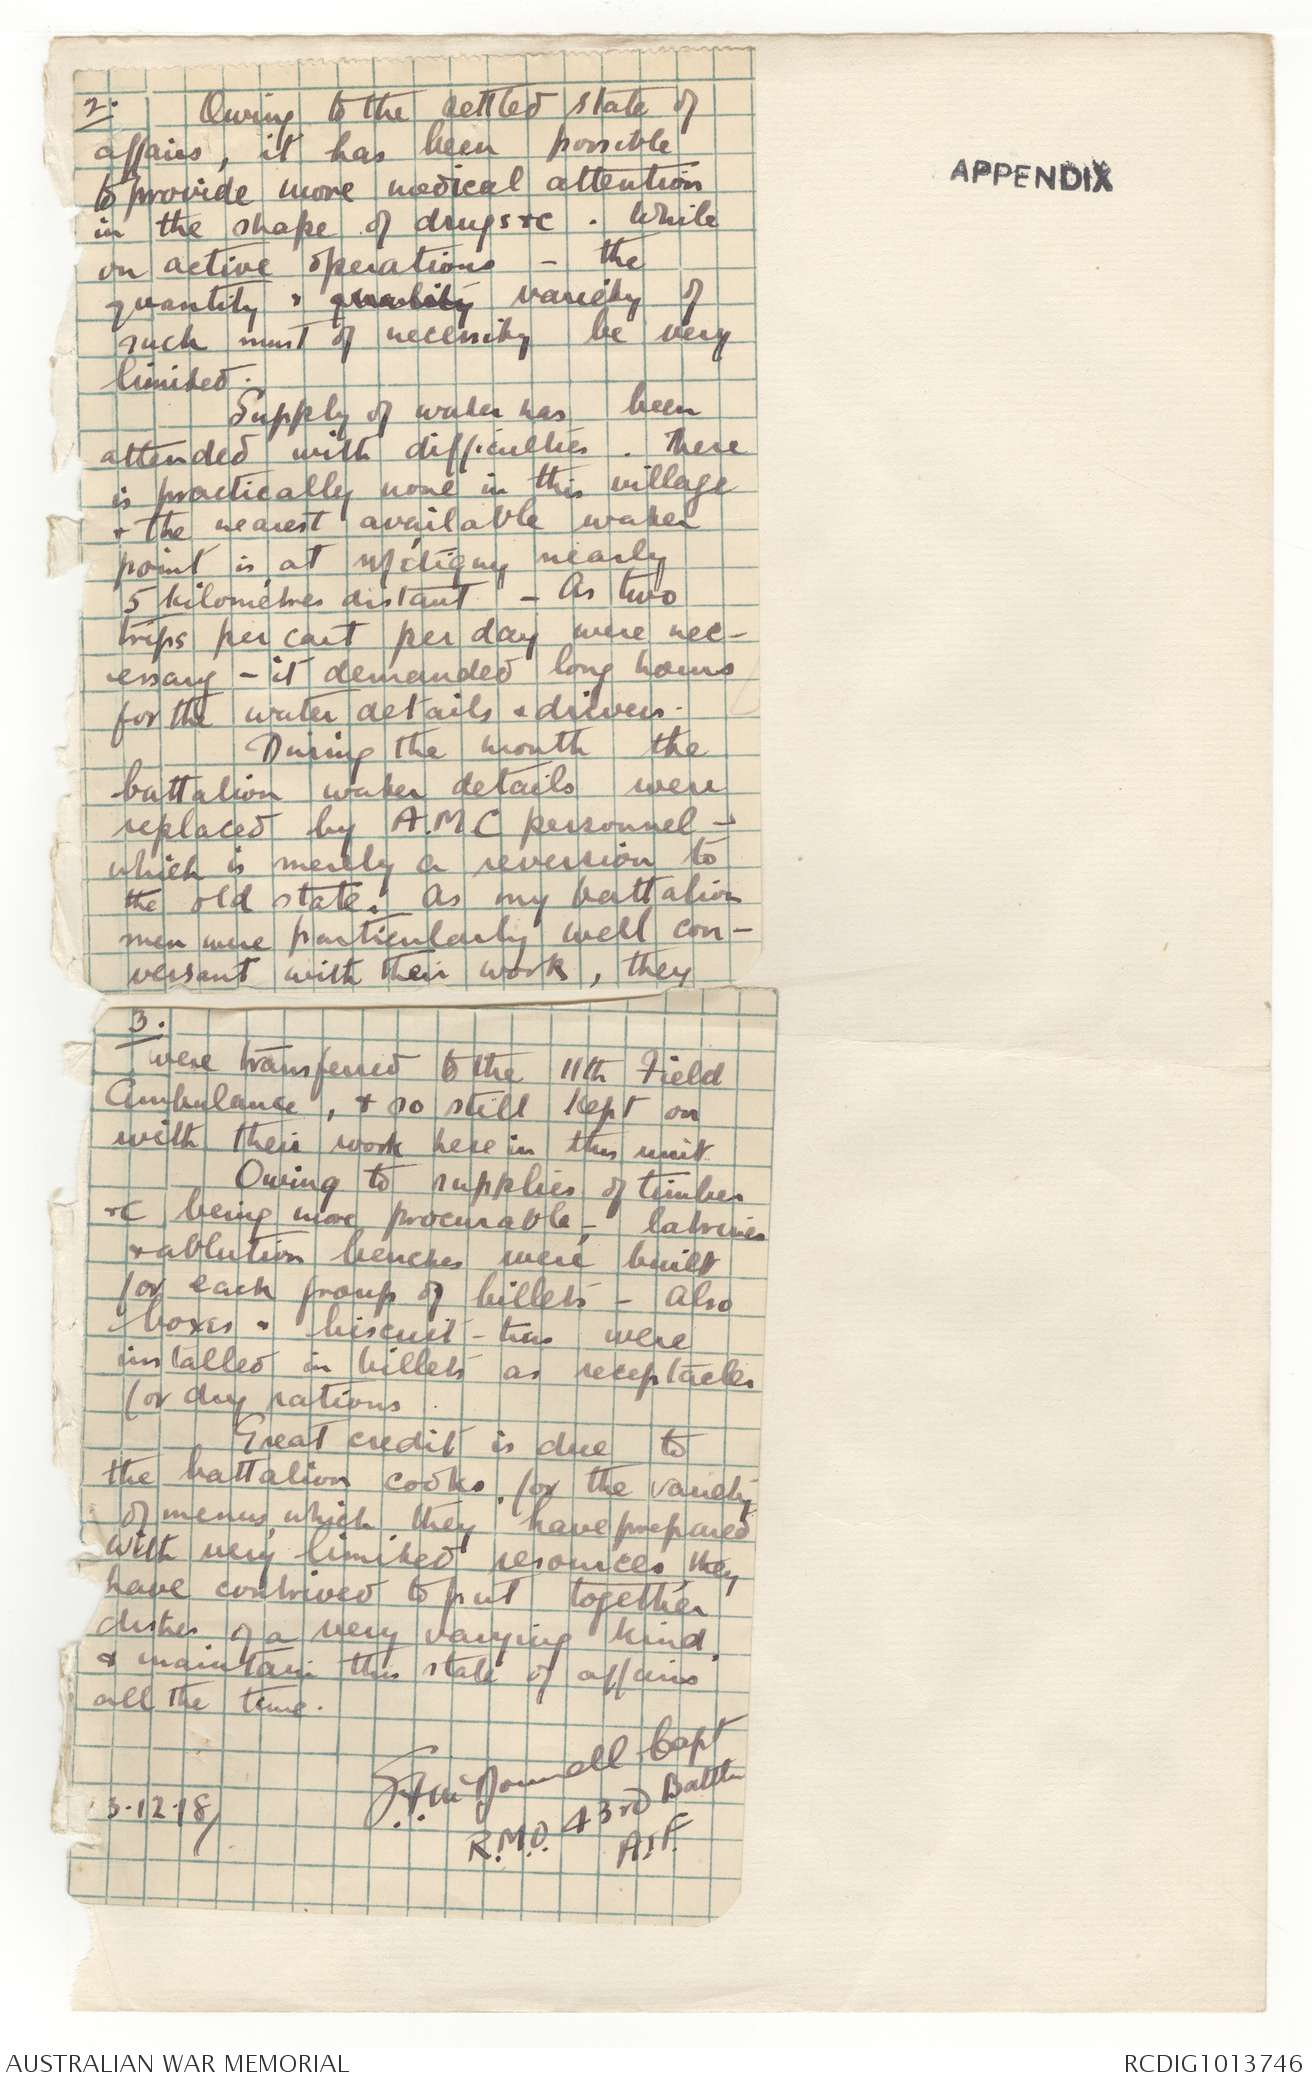 APPENDIX
2. Owing to the settled state of
affairs, it has been possible
to provide more medical attention
in the shape of drugs &c. While
on active operations - the
quantity & quality variety of
such must of necessity be very
limited.
Supply of water has been
attended with difficulties. There
is practically none in this village
& the nearest available water
point is at
nearly
5 kilometres distant - As two
trips per cart per day were nec-
essary - it demanded long hours
for the water details & drivers.
During the month the
battalion water details were
replaced by A.M.C personnel -
which is merely a reversion to
the old state. As my battalion
men were particularly well con-
versant with their work, they
3.
were transferred to the 11th Field
Ambulance, & so still kept on
with their work here in this unit.
Owing to supplies of timber
&c being more procurable - latrines
& ablution benches were built
for each group of billets - also
boxes & biscuit-tins were
installed in billets as receptacles
for dry rations.
Great credit is due to
the battalion cooks for the variety
of menus which they have prepared
with very limited resources, they
have contrived to put together
dishes of a very varying kind
& maintain this state of affairs
all the time.
McDonnell Capt
R.M.O. 43rd Battn
A.I.F.
3.12.18/
AUSTRALIAN WAR MEMORIAL
RCDIG1013746